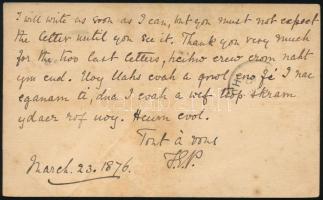 I will write as soon as I can, but you must not expect
the letter until you see it. Thank you very much
for the two last letters, hcihw erew erom naht
ym eud. Uoy llahs evah a gnol eno fi I nac
eganam ti, dna I evah a wef topp skram
ydaer rof uoy. Hcum evol.
Tout à vous
March. 23. 1876.